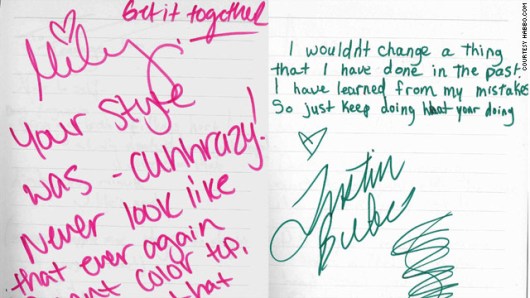 Get it together
Miley,
Your style
was - cuhhrazy!
Never look like
that ever again
color tip,
that
I wouldn't change a thing
that I have done in the past.
I have learned from my mistakes
So just keep doing what your doing
Justin
Bieber
COURTESY HABBO.COM